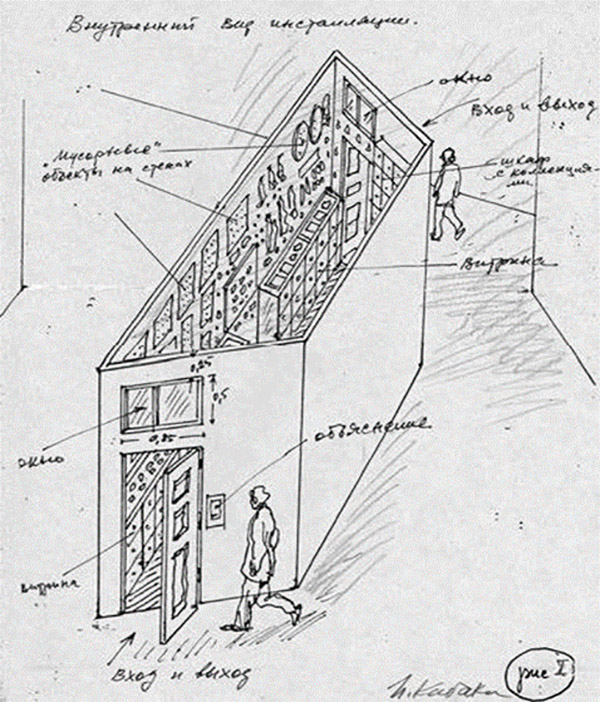 Внутренний вид инсталляции.
окно
Вход и выход
"Мусорные"
объекты на стенах
шкаф
с коллекция-
ми
витрина
0,25
0,5
0,85
окно
объяснение
витрина
Вход и выход
И. Кабаков
рис I